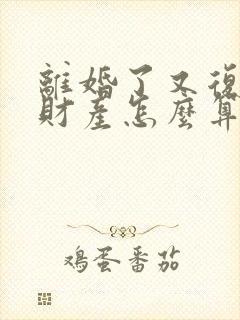 離婚了又復
財產怎麼算
鸡蛋番茄